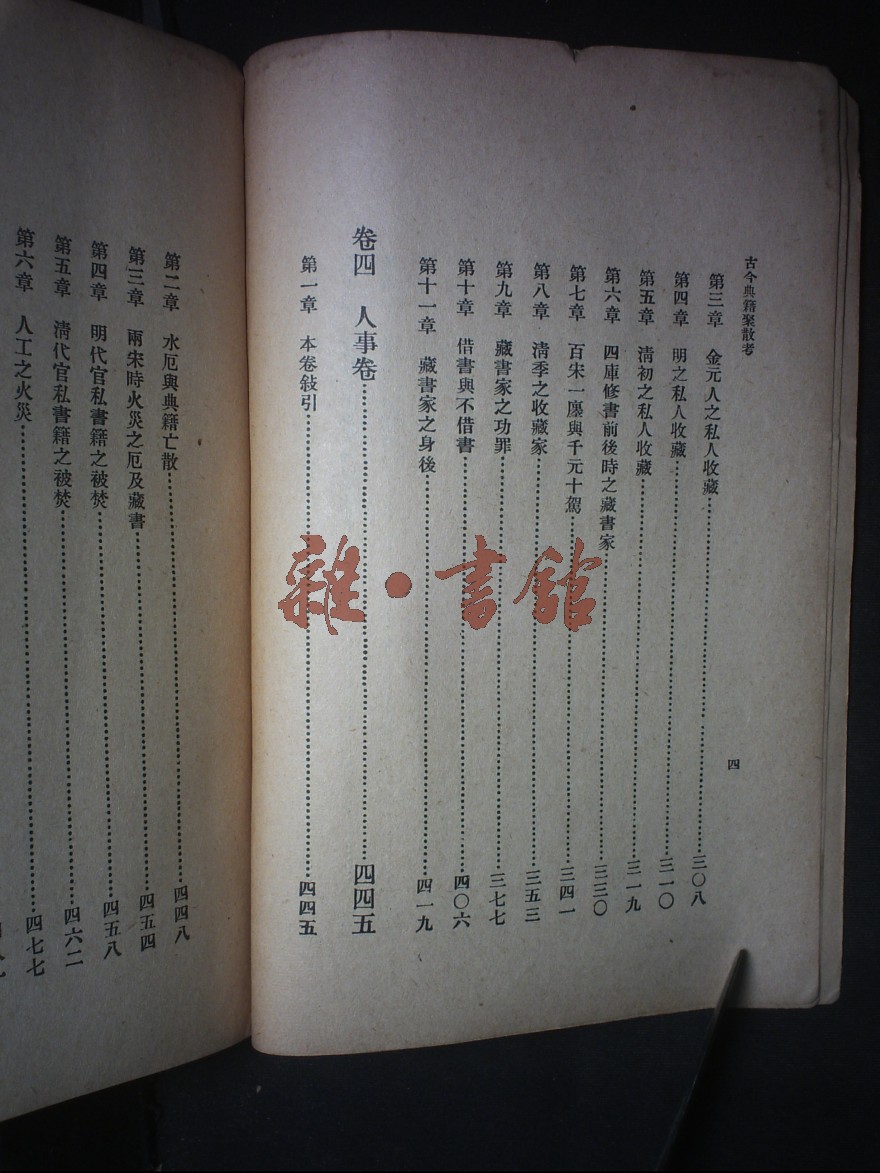 古今典籍聚散考
四
第三章 金元人之私人收藏……三〇八
第四章 明之私人收藏……三一〇
第五章 清初之私人收藏……三一九
第六章 四庫修書前後時之藏書家……三三〇
第七章 百宋一廛與千元十駕……三四一
第八章 清季之收藏家……三五三
第九章 藏書家之功罪……三七七
第十章 借書與不借書……四〇六
第十一章 藏書家之身後……四一九
卷四 人事卷……四四五
第一章 本卷敍引……四四五
第二章 水厄與典籍亡散……四四八
第三章 兩宋時火災之厄及藏書……四五四
第四章 明代官私書籍之被焚……四五八
第五章 清代官私書籍之被焚……四六二
第六章 人工之火災……四七七
雜·書館